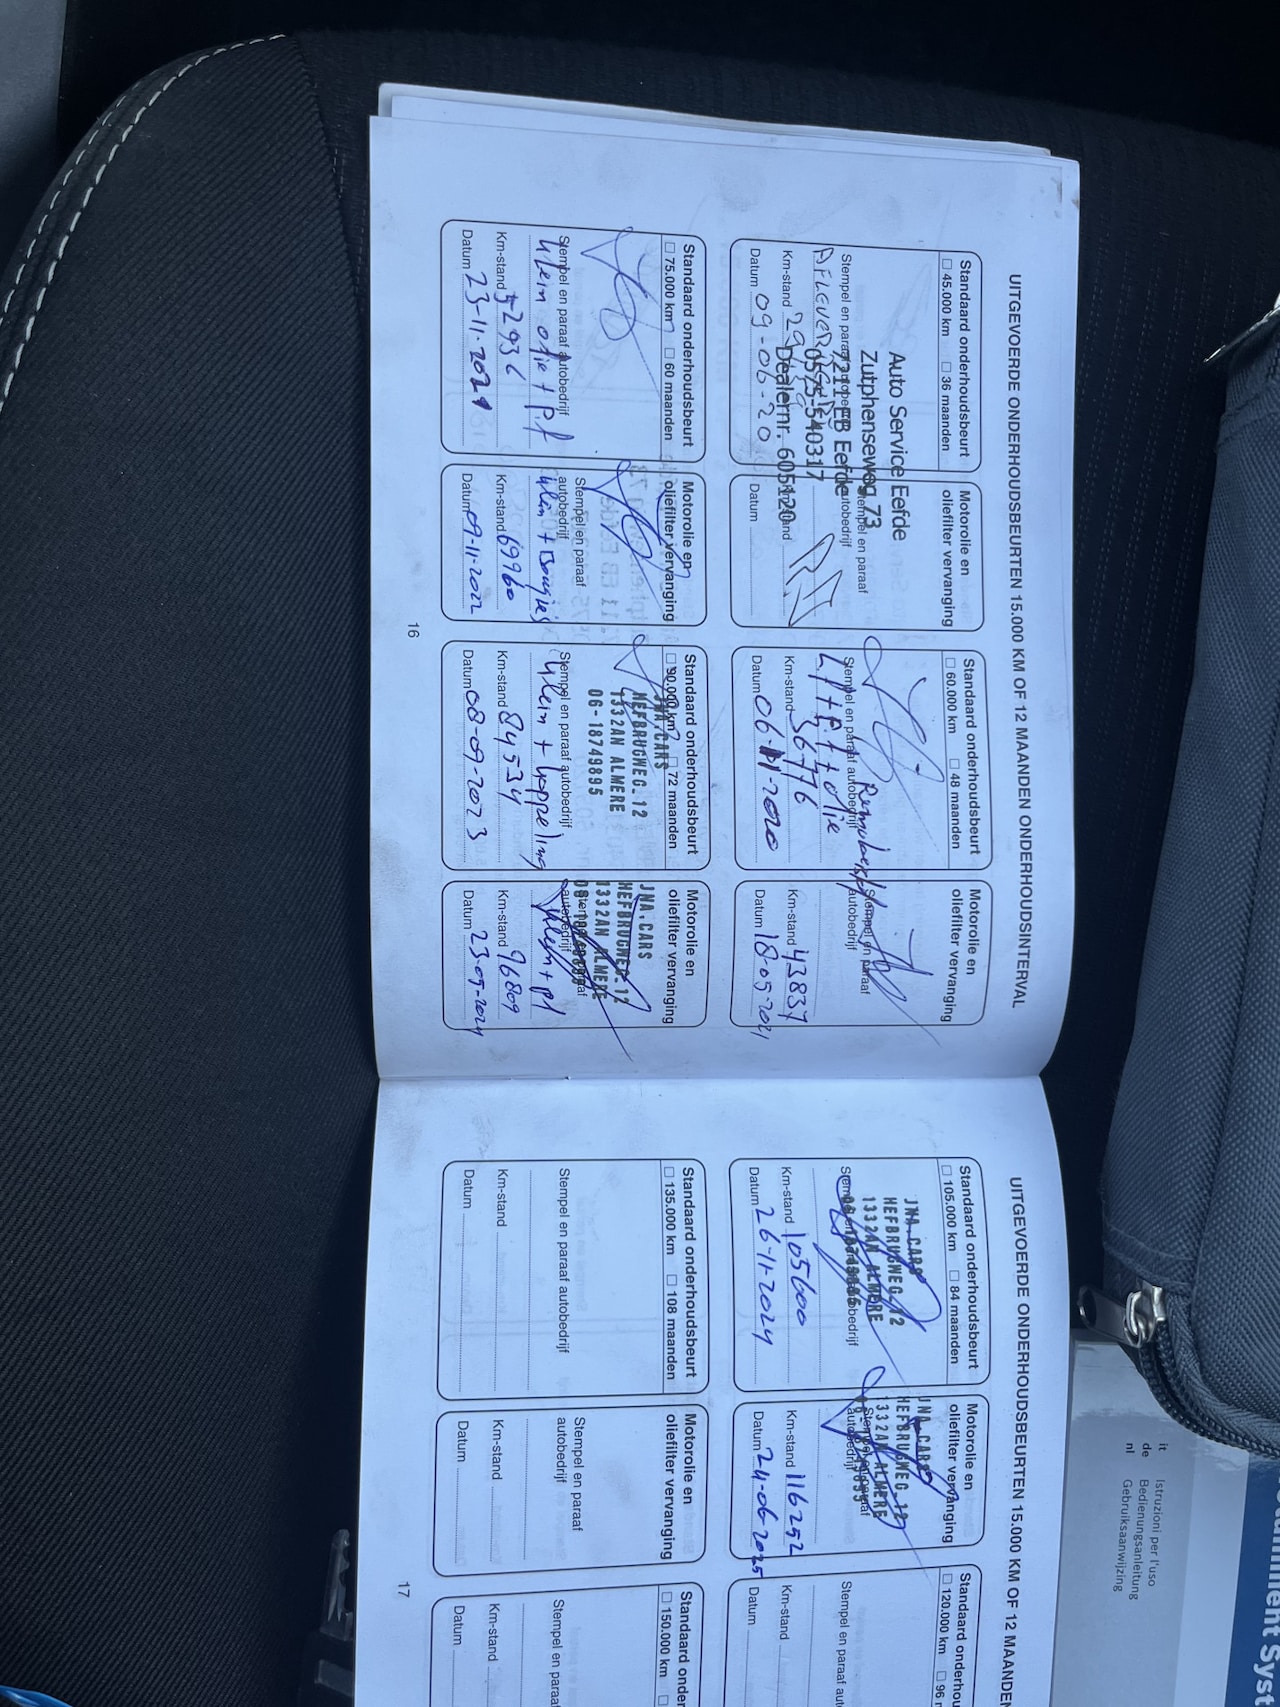 UITGEVOERDE ONDERHOUDSBEURTEN 15.000 KM OF 12 MAANDEN ONDERHOUDSINTERVAL
Standaard onderhoudsbeurt
☐ 45.000 km ☐ 36 maanden
Auto Service Eefde
Zutphenseweg 73
7211 EB Eefde
0575-540317
Dealernr. 605120
Stempel en paraaf autobedrijf
Km-stand
Datum 09-06-20
Motorolie en
oliefilter vervanging
Stempel en paraaf
autobedrijf
Km-stand
Datum
Standaard onderhoudsbeurt
☐ 60.000 km ☐ 48 maanden
Stempel en paraaf autobedrijf
Km-stand 36776
Datum 06-11-2020
Motorolie en
oliefilter vervanging
Stempel en paraaf
autobedrijf
Km-stand 43837
Datum 18-05-2021
Standaard onderhoudsbeurt
☐ 75.000 km ☐ 60 maanden
Stempel en paraaf autobedrijf
klein olie + p.f
Km-stand 52936
Datum 23-11-2021
Motorolie en
oliefilter vervanging
Stempel en paraaf
autobedrijf
klein + Bougies
Km-stand 69960
Datum 09-11-2022
Standaard onderhoudsbeurt
☐ 90.000 km ☐ 72 maanden
JNA.CARS
HEFBRUGWEG.12
1332AN ALMERE
06-18749895
Stempel en paraaf autobedrijf
klein + koppeling
Km-stand 84534
Datum 08-09-2023
Motorolie en
oliefilter vervanging
JNA.CARS
HEFBRUGWEG.12
1332AN ALMERE
klein + pf
Km-stand 96809
Datum 23-05-2024
16
UITGEVOERDE ONDERHOUDSBEURTEN 15.000 KM OF 12 MAANDEN
Standaard onderhoudsbeurt
☐ 105.000 km ☐ 84 maanden
JNA.CARS
HEFBRUGWEG.12
1332AN ALMERE
Km-stand 105600
Datum 26-11-2024
Motorolie en
oliefilter vervanging
JNA.CARS
HEFBRUGWEG.12
1332AN ALMERE
Km-stand 116252
Datum 24-06-2025
Standaard onderhou
☐ 120.000 km ☐ 96 m
Stempel en paraaf aut
Km-stand
Datum
Standaard onderhoudsbeurt
☐ 135.000 km ☐ 108 maanden
Stempel en paraaf autobedrijf
Km-stand
Datum
Motorolie en
oliefilter vervanging
Stempel en paraaf
autobedrijf
Km-stand
Datum
Standaard onder
☐ 150.000 km ☐
Stempel en paraaf
Km-stand
Datum
17
it Istruzioni per l'uso
de Bedienungsanleitung
nl Gebruiksaanwijzing